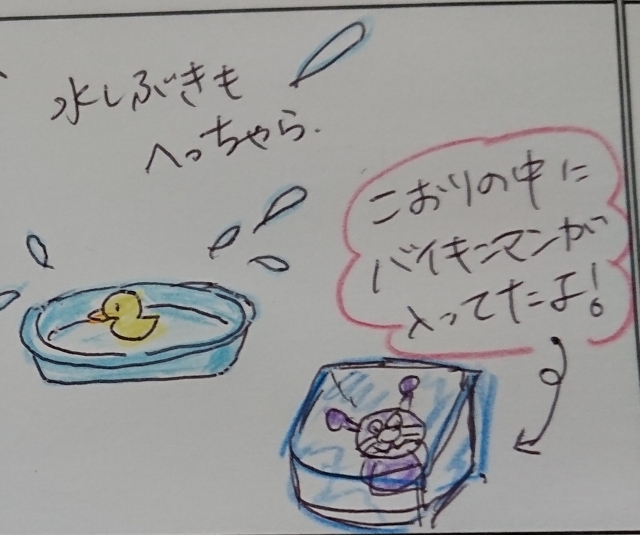 水しぶきも
へっちゃら.
こおりの中に
バイキンマンが
入ってたよ!